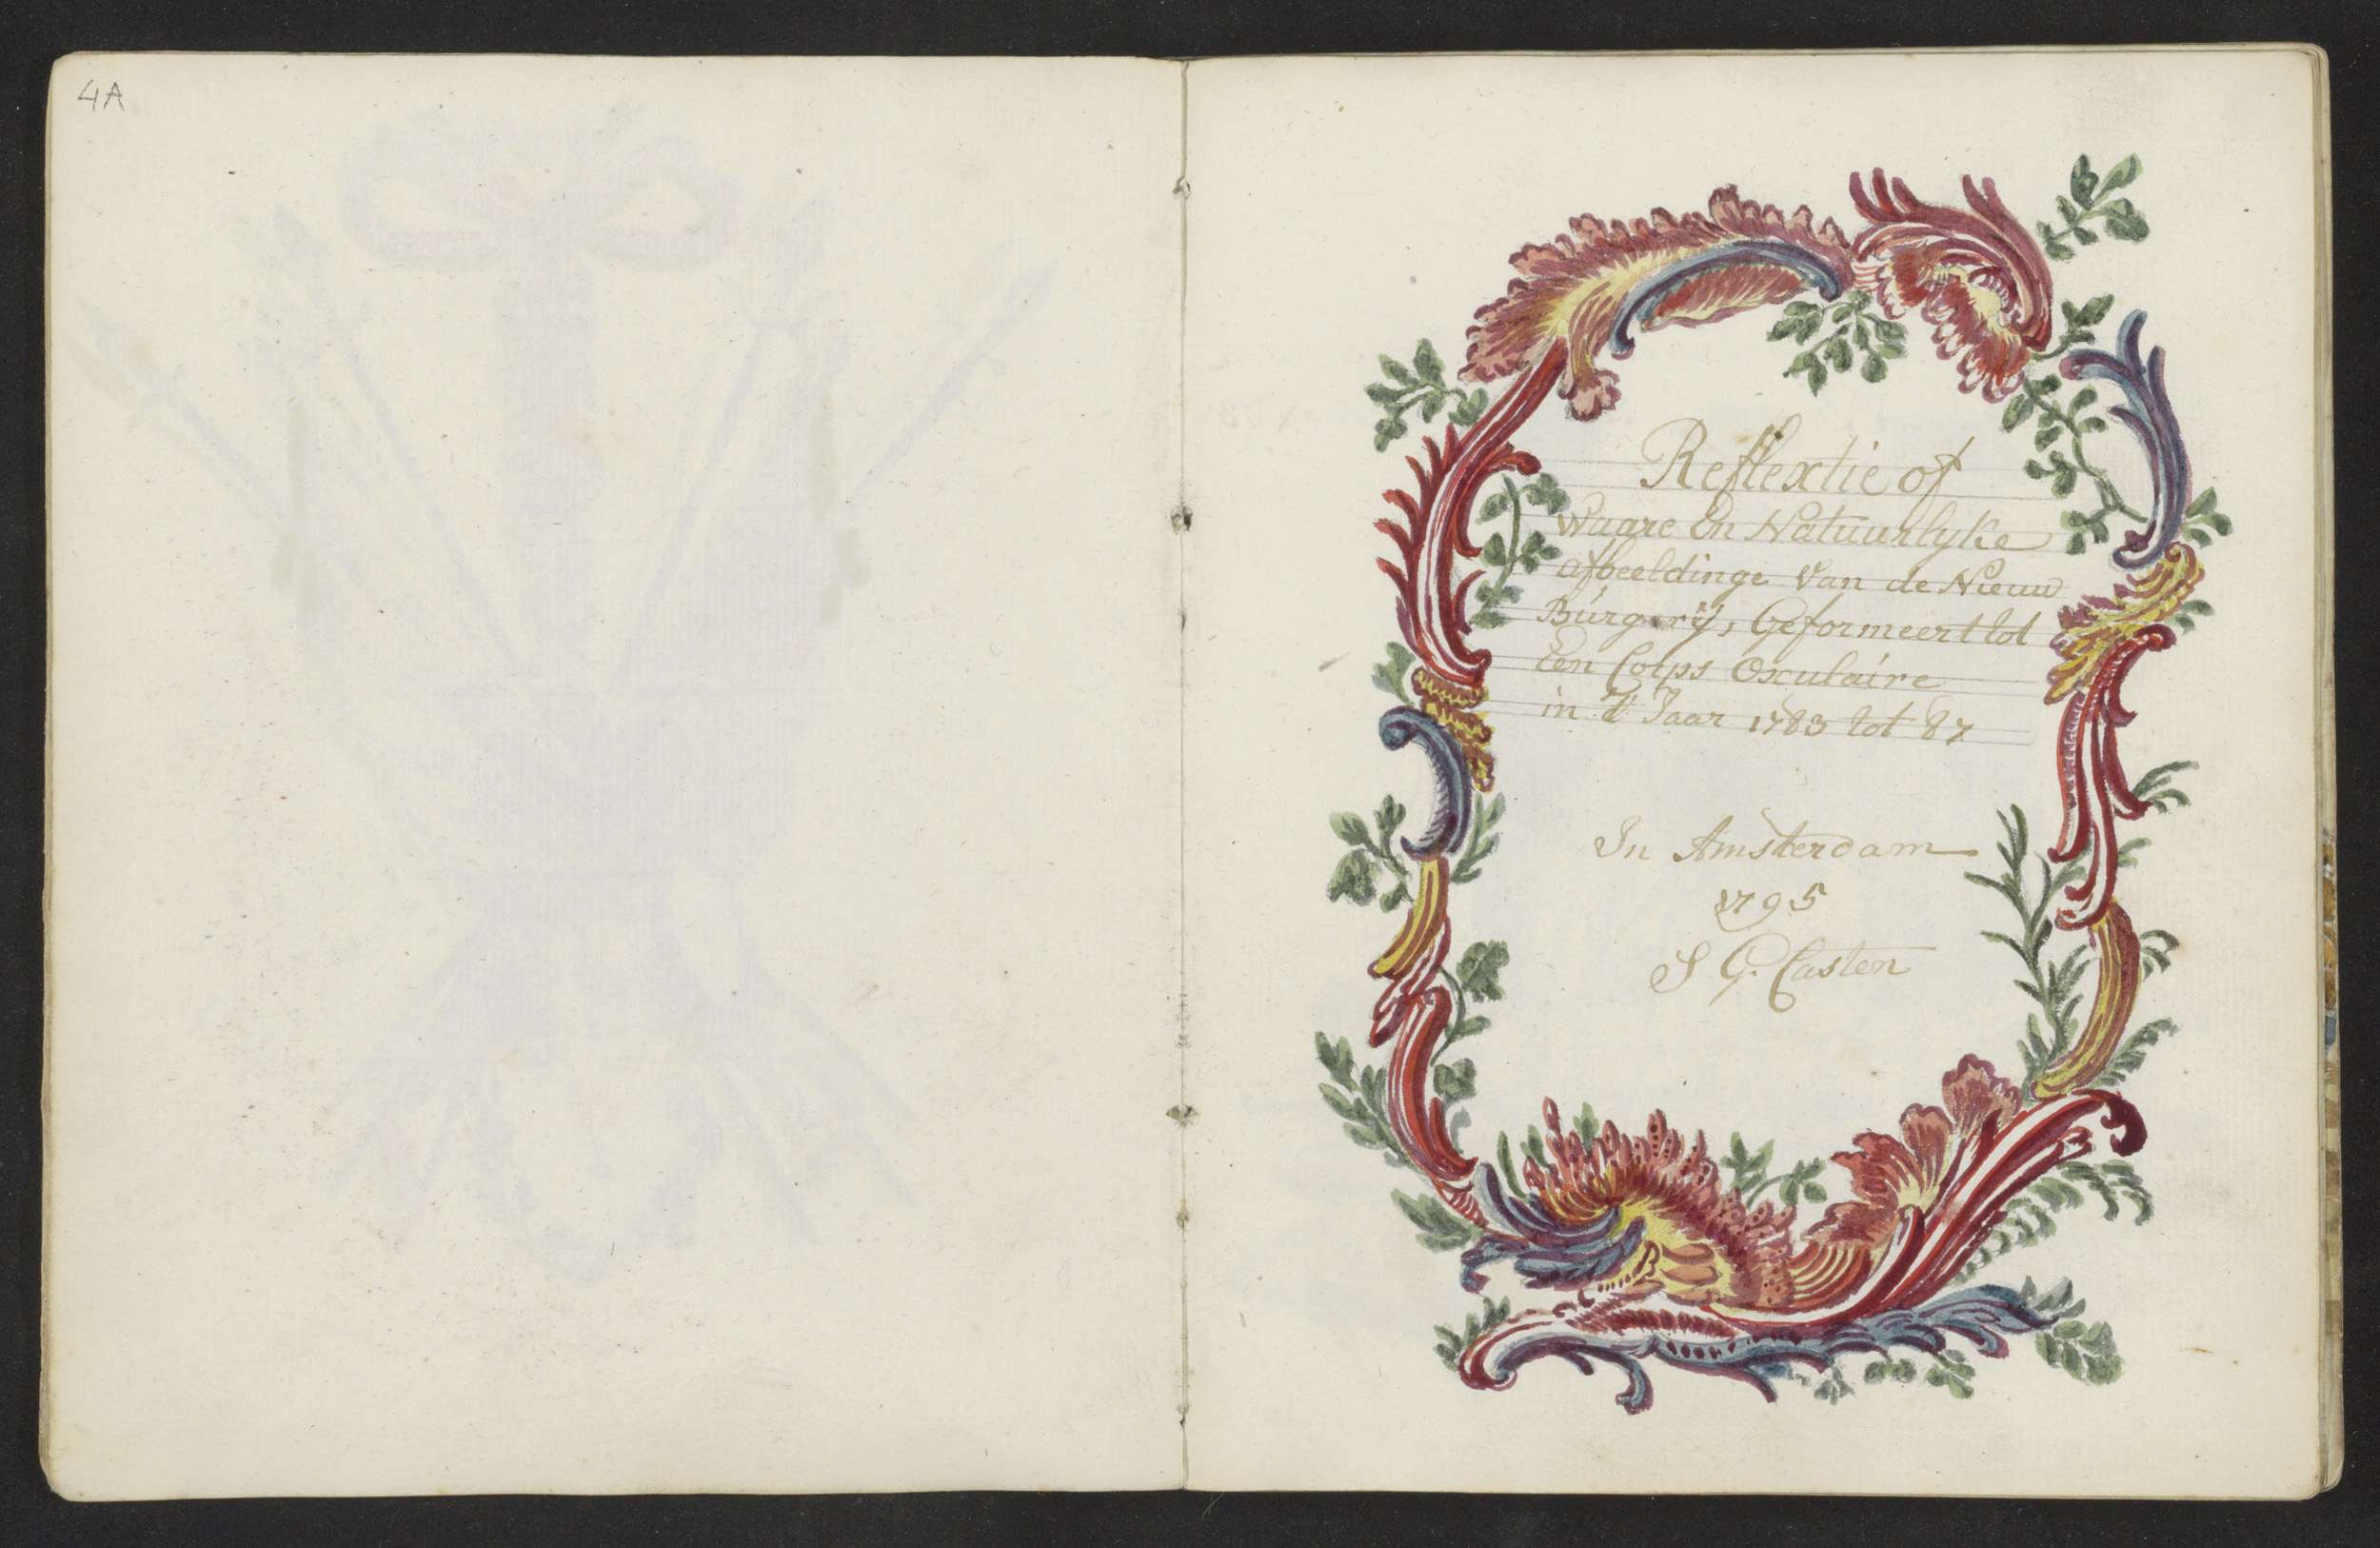 4A
Reflextie of
Waare En Natuurlyke
afbeeldinge Van de Nieuw
Burgerÿ, Geformeert tot
Een Corps Osculaire
in 't Jaar 1783 tot 87
In Amsterdam
1795
S G. Casten